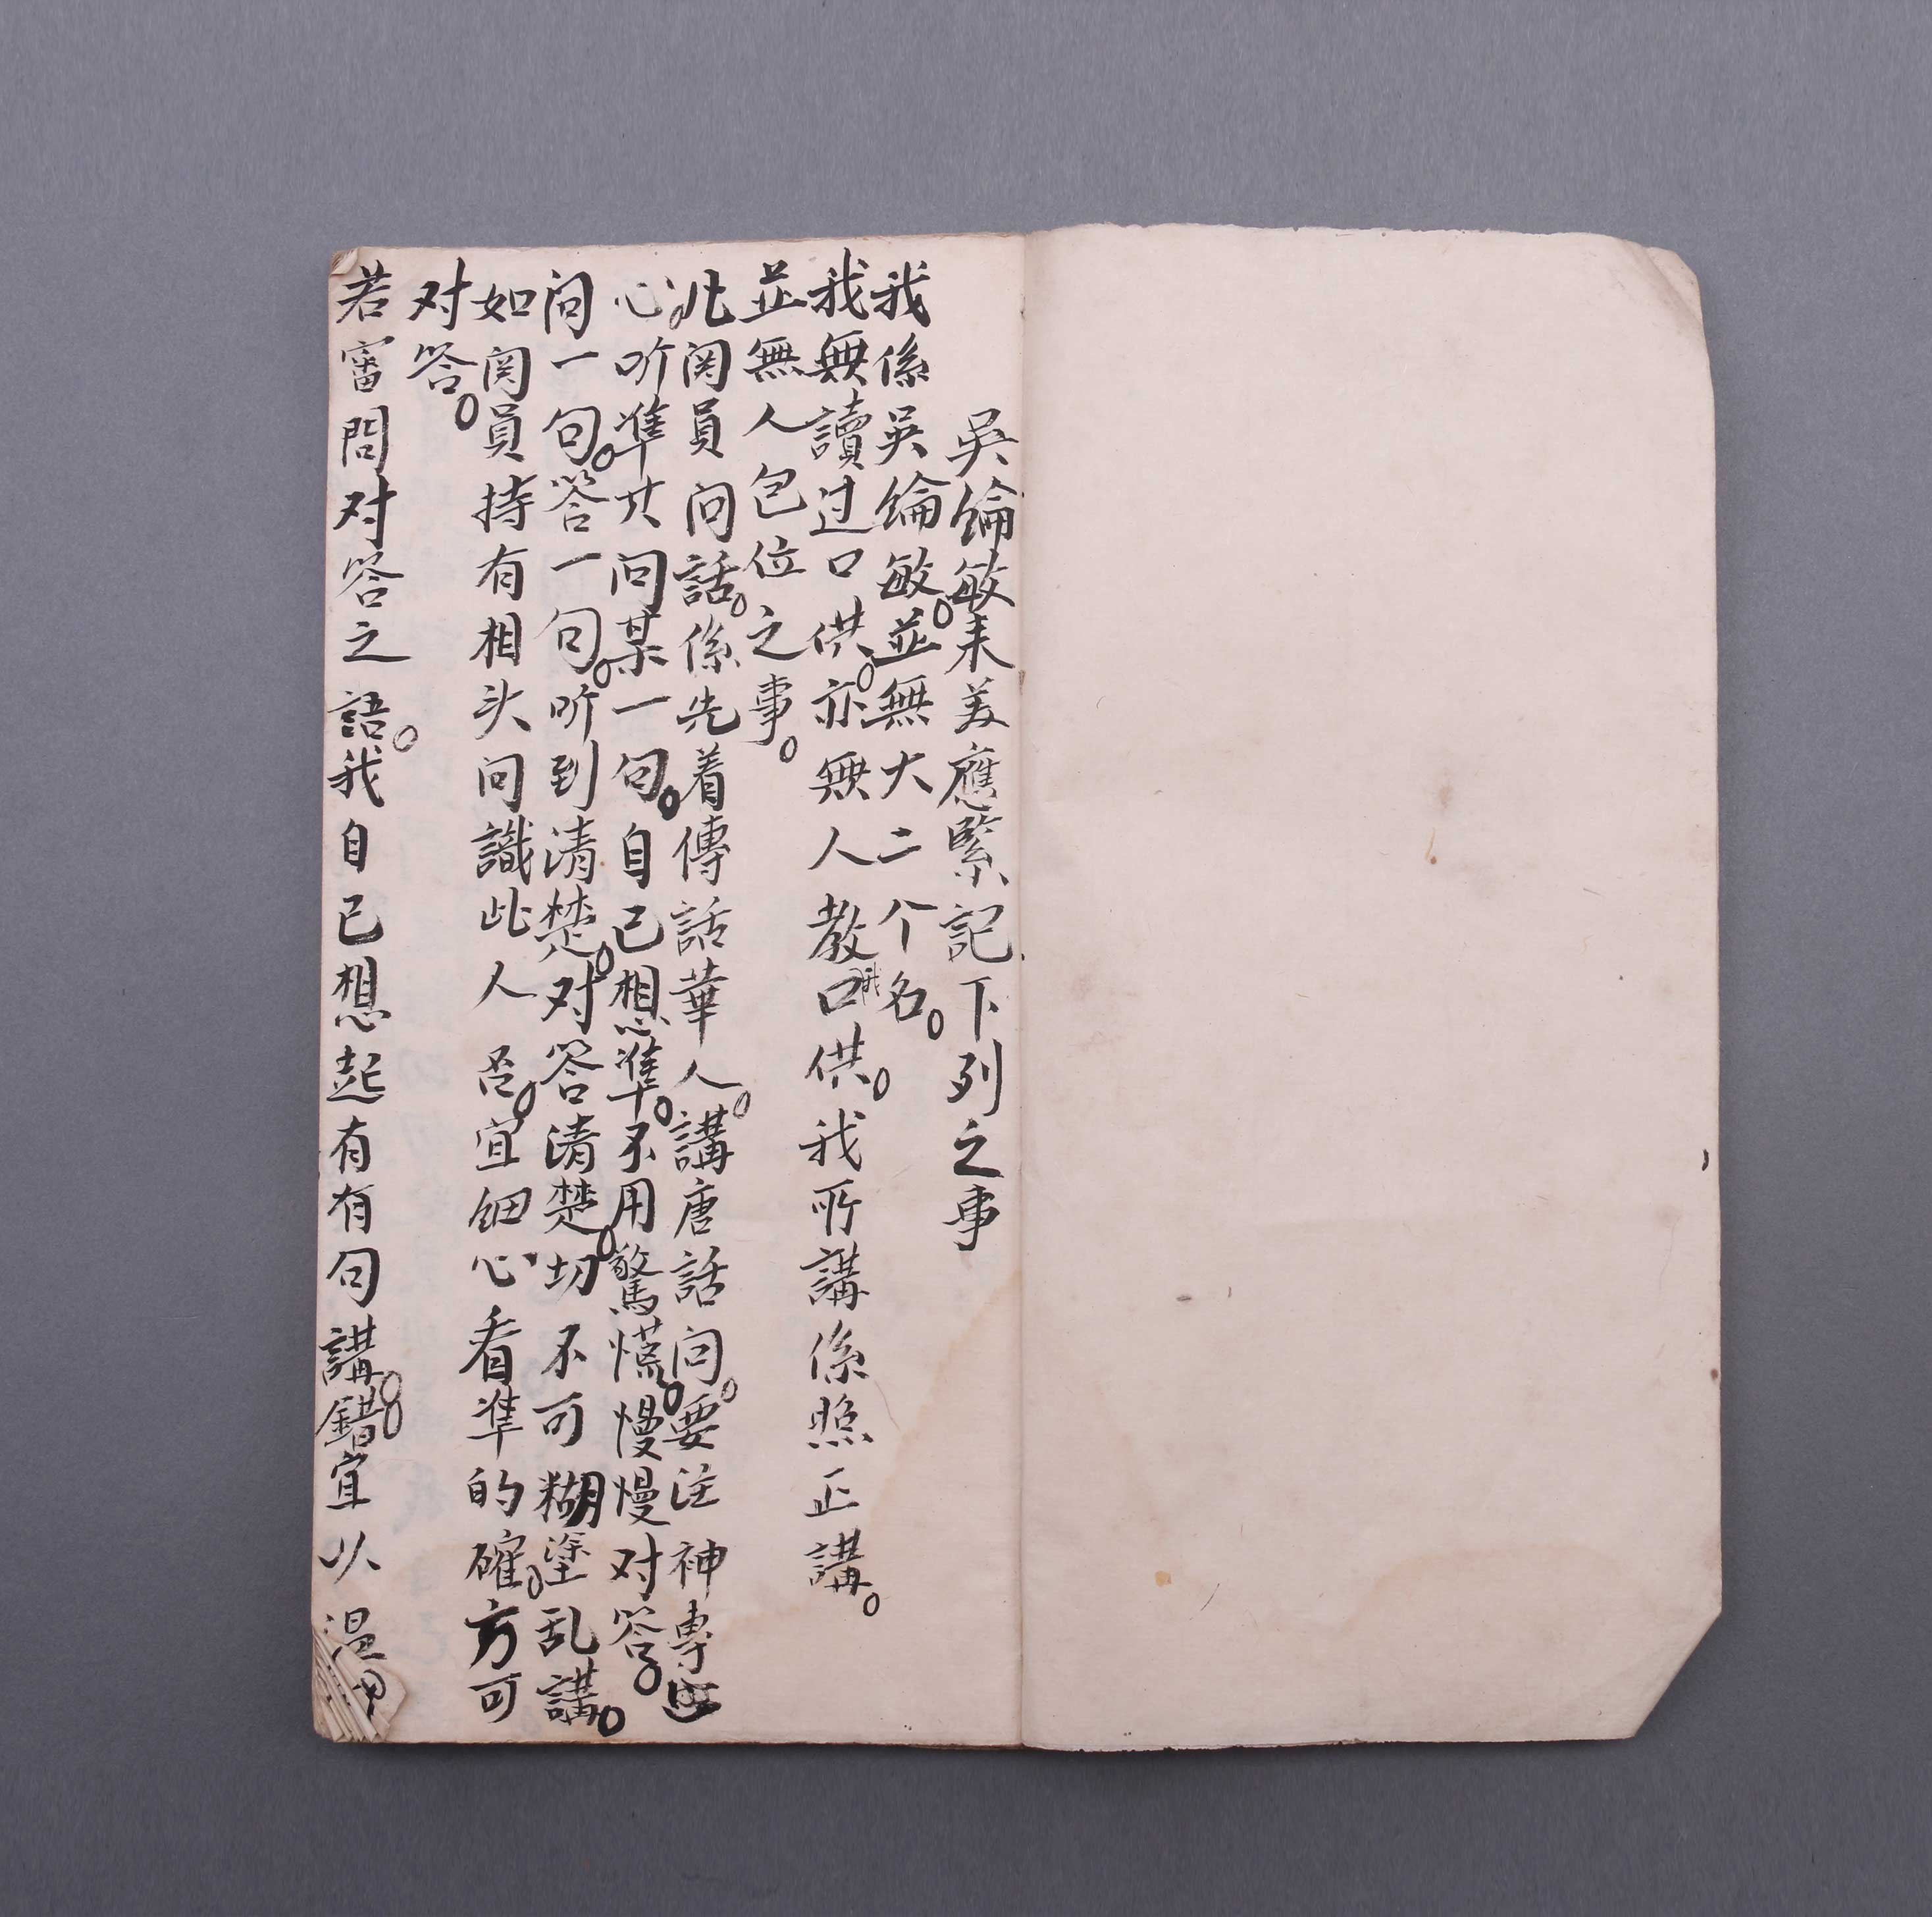 吳綸敏来美應緊記下列之事
我係吳綸敏。並無大二个名。
我無讀过口供。亦無人教我口供。我所講係照正講。
並無人包位之事。
凡関員问話。係先着傳話華人。講唐話问。要注神専
心。听準其问某一句。自己想準。不用驚慌。慢慢对答。
问一句。答一句。听到清楚。对答清楚。切不可糊塗乱講。
如関員持有相头问識此人否。宜细心看準的確。方可
对答。
若審問对答之語。我自己想起有有句講錯。宜以温